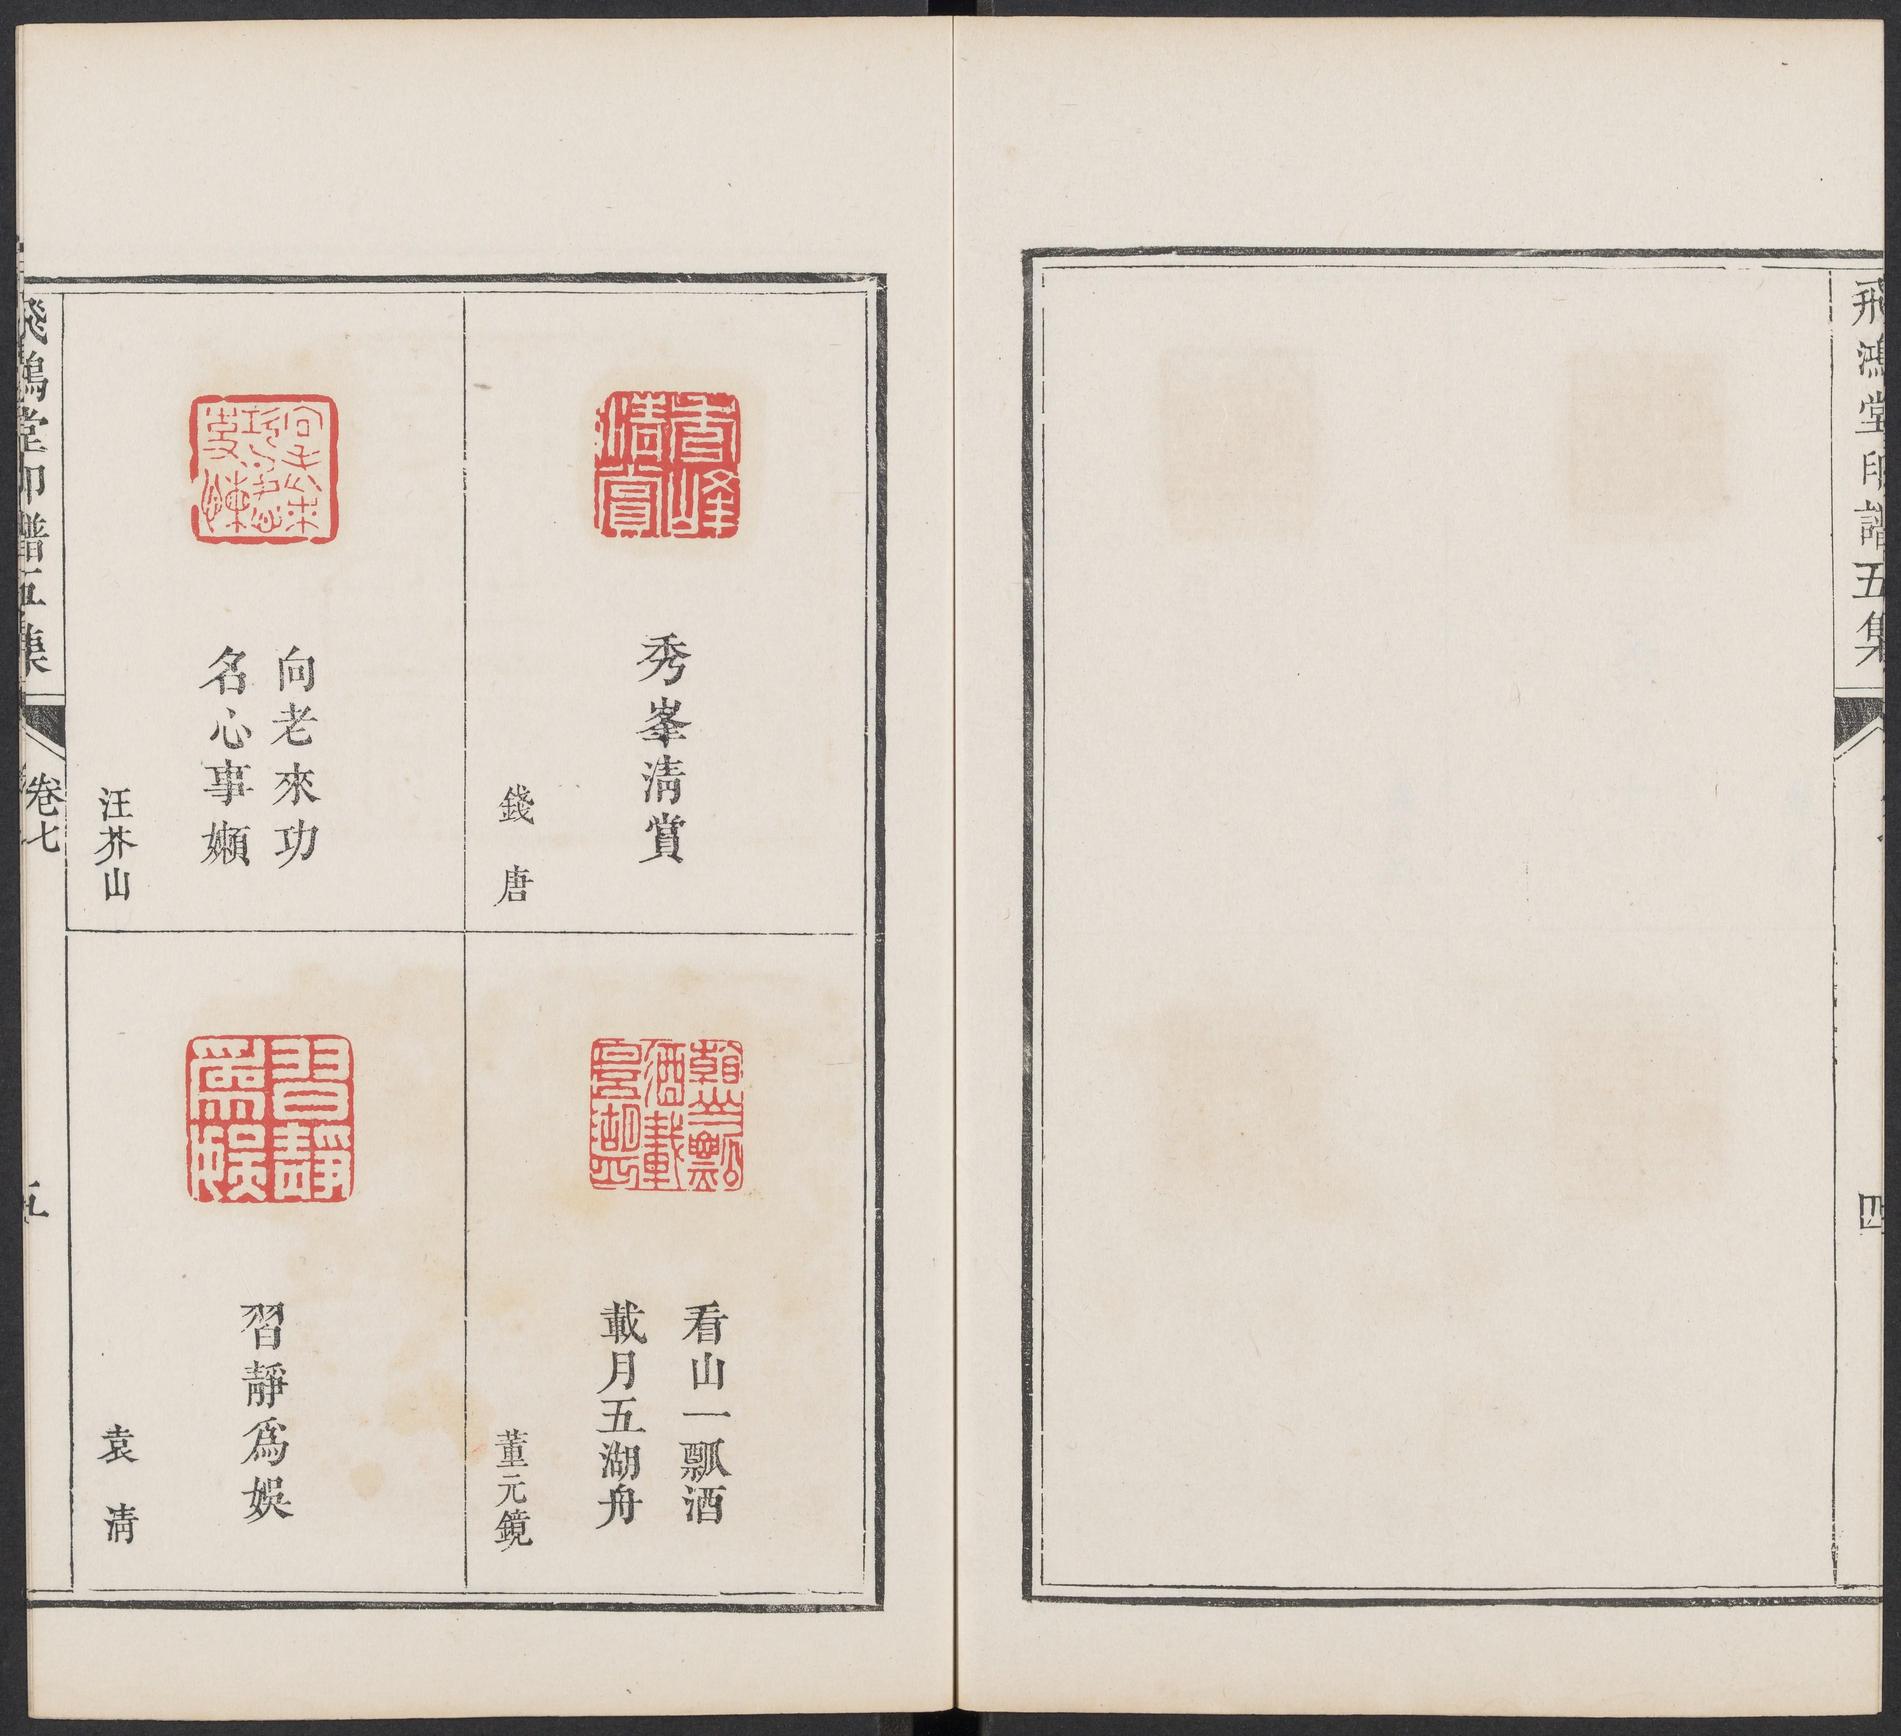 飛鴻堂印譜五集
四
秀峯清賞
錢唐
看山一瓢酒
載月五湖舟
董元鏡
向老來功
名心事嬾
汪芥山
習靜爲娛
袁清
飛鴻堂印譜五集
卷七
五